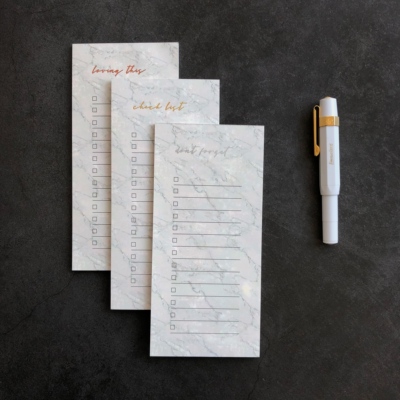 loving this
check list
don't forget